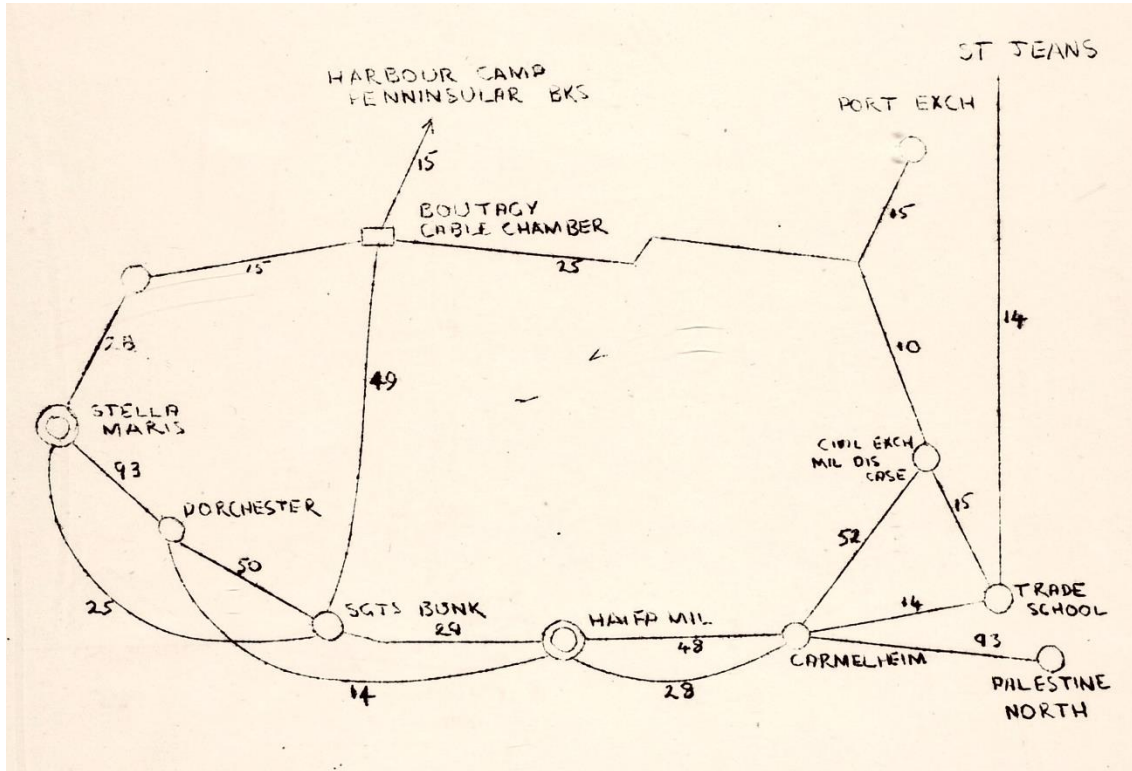 ST JEANS
HARBOUR CAMP
PENNINSULAR BKS
PORT EXCH
15
15
BOUTAGY
CABLE CHAMBER
15
25
14
28
10
49
STELLA
MARIS
CIVIL EXCH
MIL DIS
CASE
93
15
DORCHESTER
52
50
25
SGTS BUNK
HAIFA MIL
14
TRADE
SCHOOL
48
93
CARMELHEIM
14
28
PALESTINE
NORTH